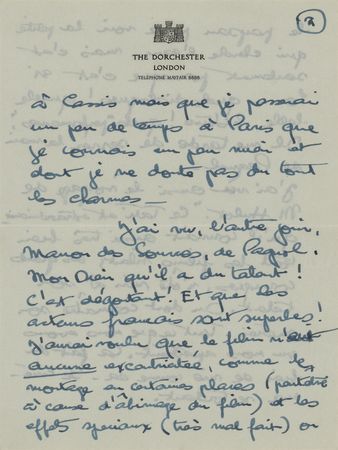 3
THE DORCHESTER
LONDON
TELEPHONE MAYFAIR 8888
à Cassis mais que je passerai
un peu de temps à Paris que
je connais un peu mais et
dont je ne doute pas du tout
les charmes —
J'ai vu, l'autre jour,
Manon des Sources, de Pagnol.
Mon Dieu qu'il a du talent!
C'est dégoutant! Et que les
acteurs français sont superbes!
J'aurai voulu que le film n'eut
aucune excentricité, comme le
montage en certaines places (peutêtre
à cause d'abimage du film) et les
effets speciaux (très mal fait) ou